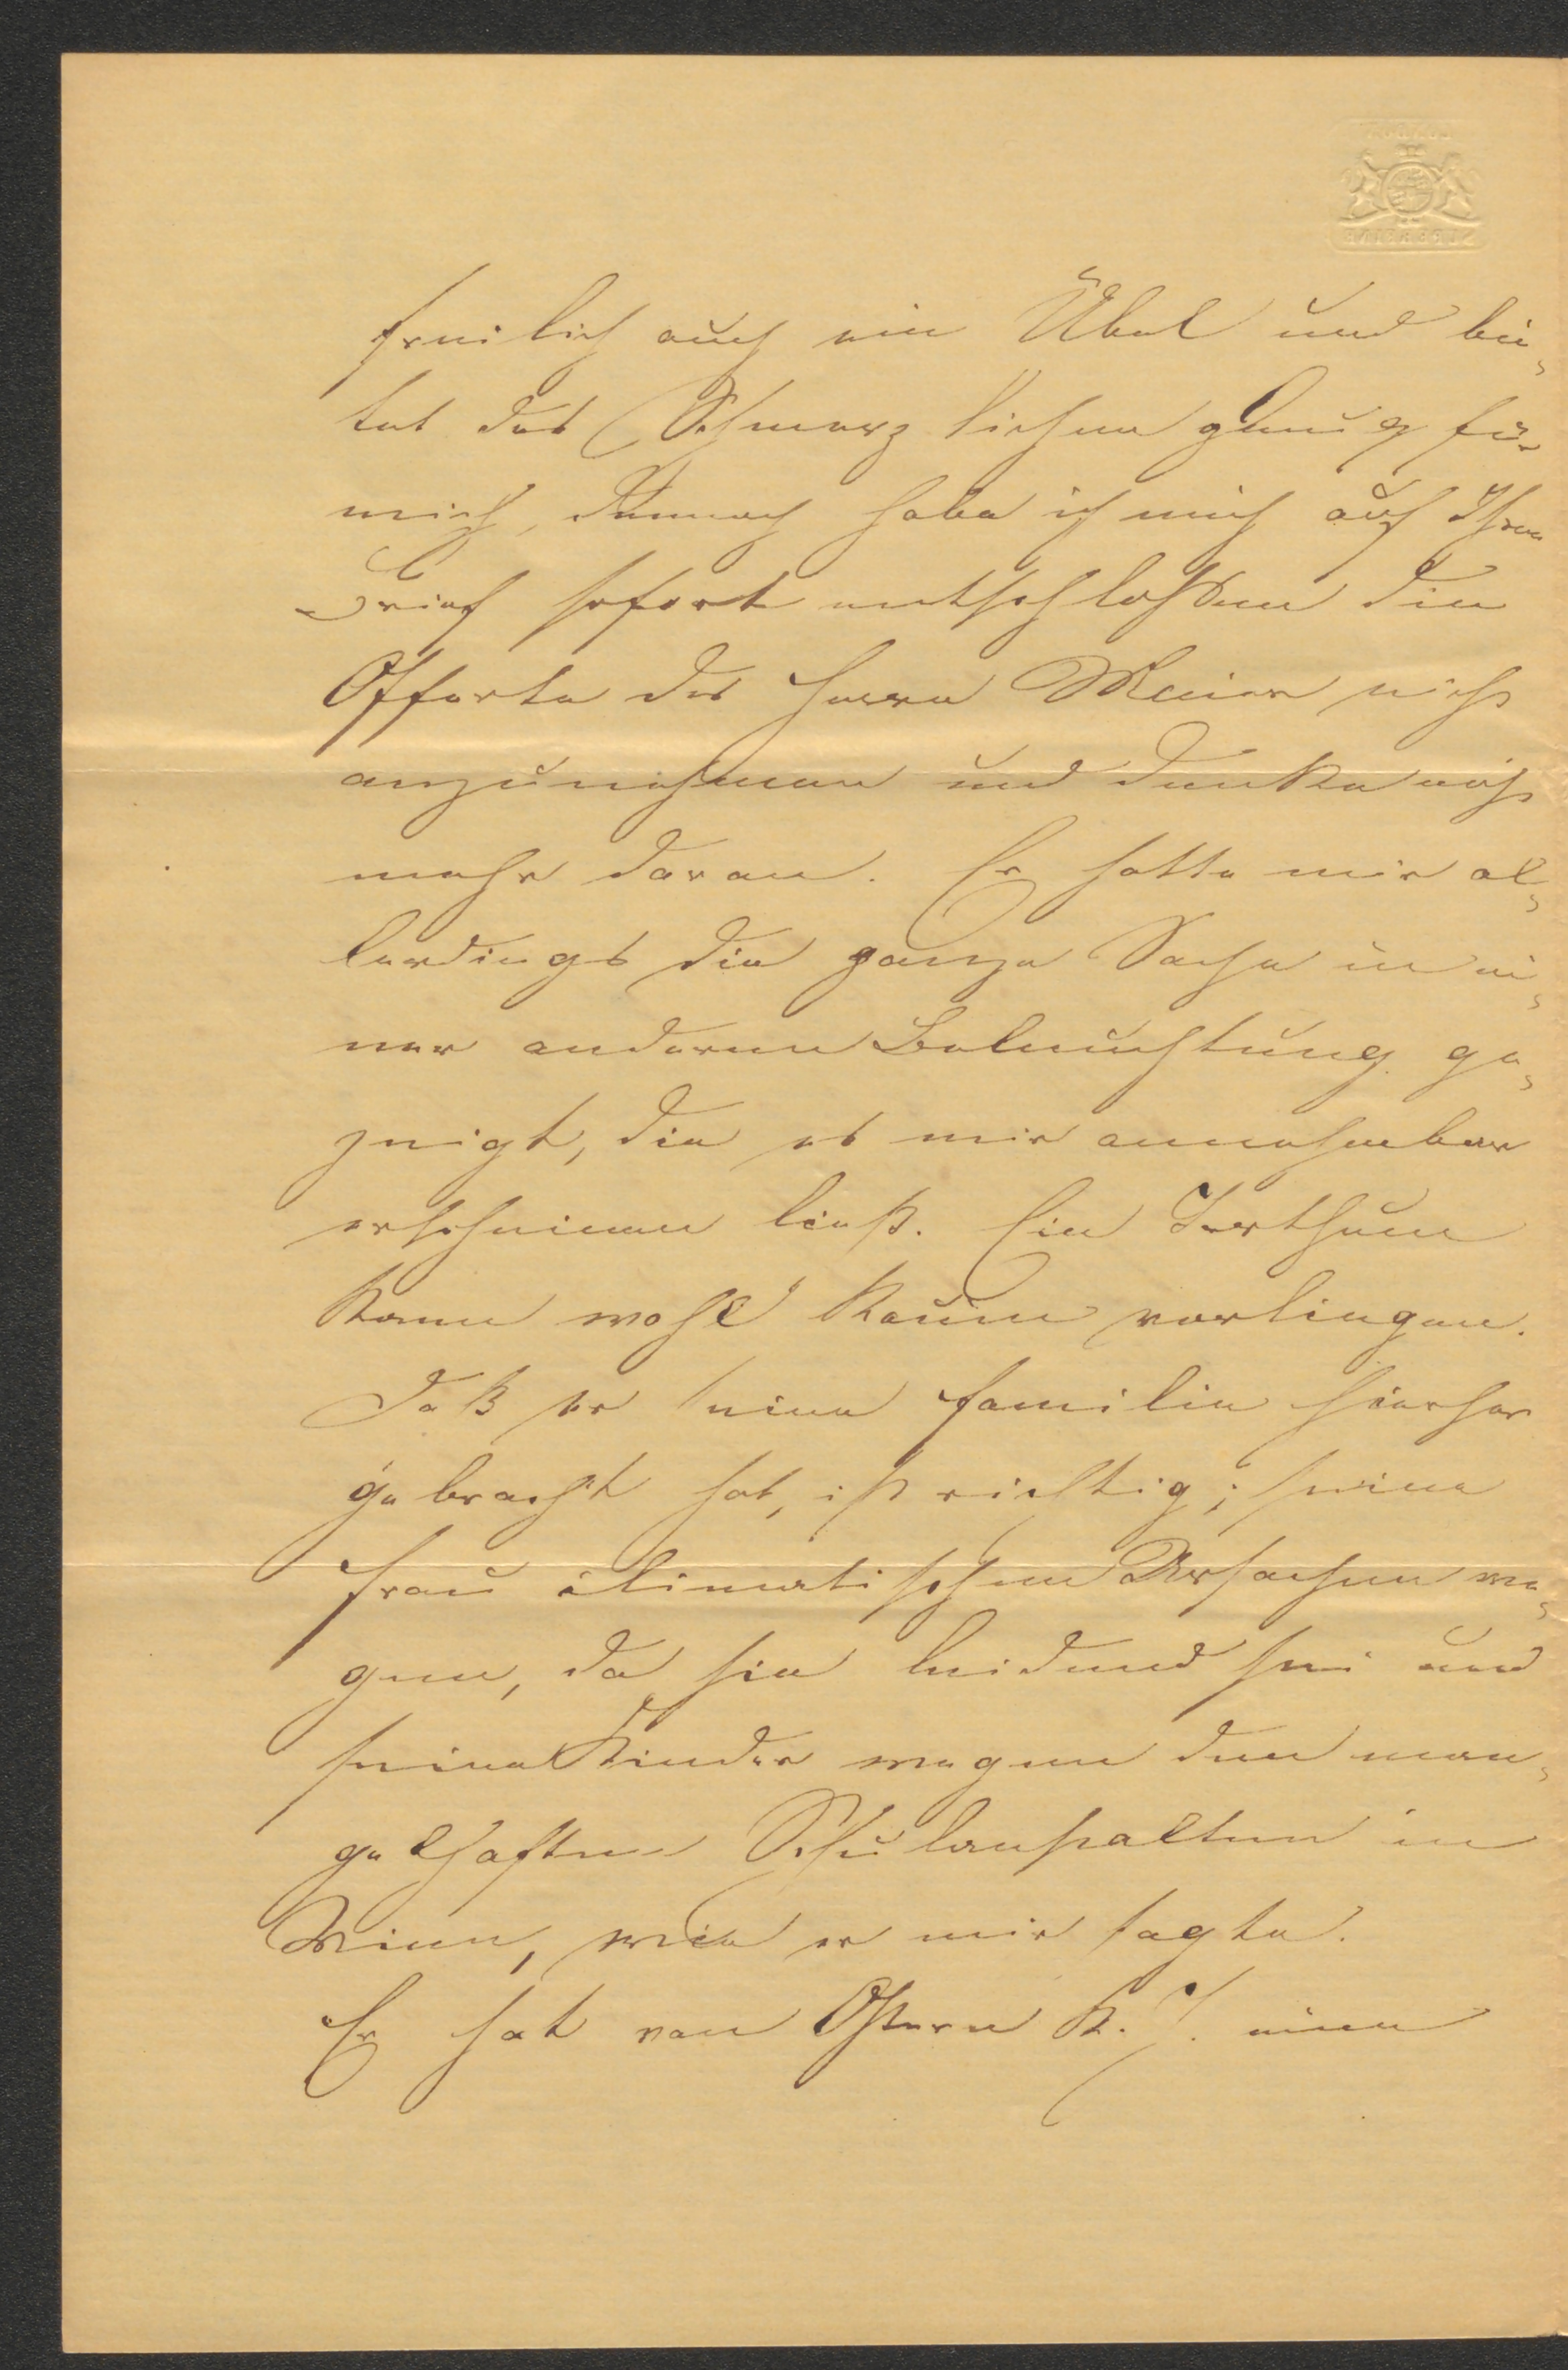 freilich auch ein Übel und bie-
tet des Schmerzlichen genug für
mich, dennoch habe ich mich auf Ihren
Brief sofort entschlossen die
Offerte des Herrn Meier nicht
anzunehmen und denke nicht
mehr daran. Er hatte mir al-
lerdings die ganze Sache in ei-
ner anderen Beleuchtung ge-
zeigt, die es mir annehmbar
erscheinen ließ. Ein Irrthum
kann wohl kaum vorliegen.
Daß er seine Familie hierher
gebracht hat, ist richtig; seine
Frau climatischen Ursachen we-
gen, da sie leidend sei und
seine Kinder wegen den man-
gelhaften Schulanstalten in
Wien, wie er mir sagte.
Er hat von Ostern k. J. einen